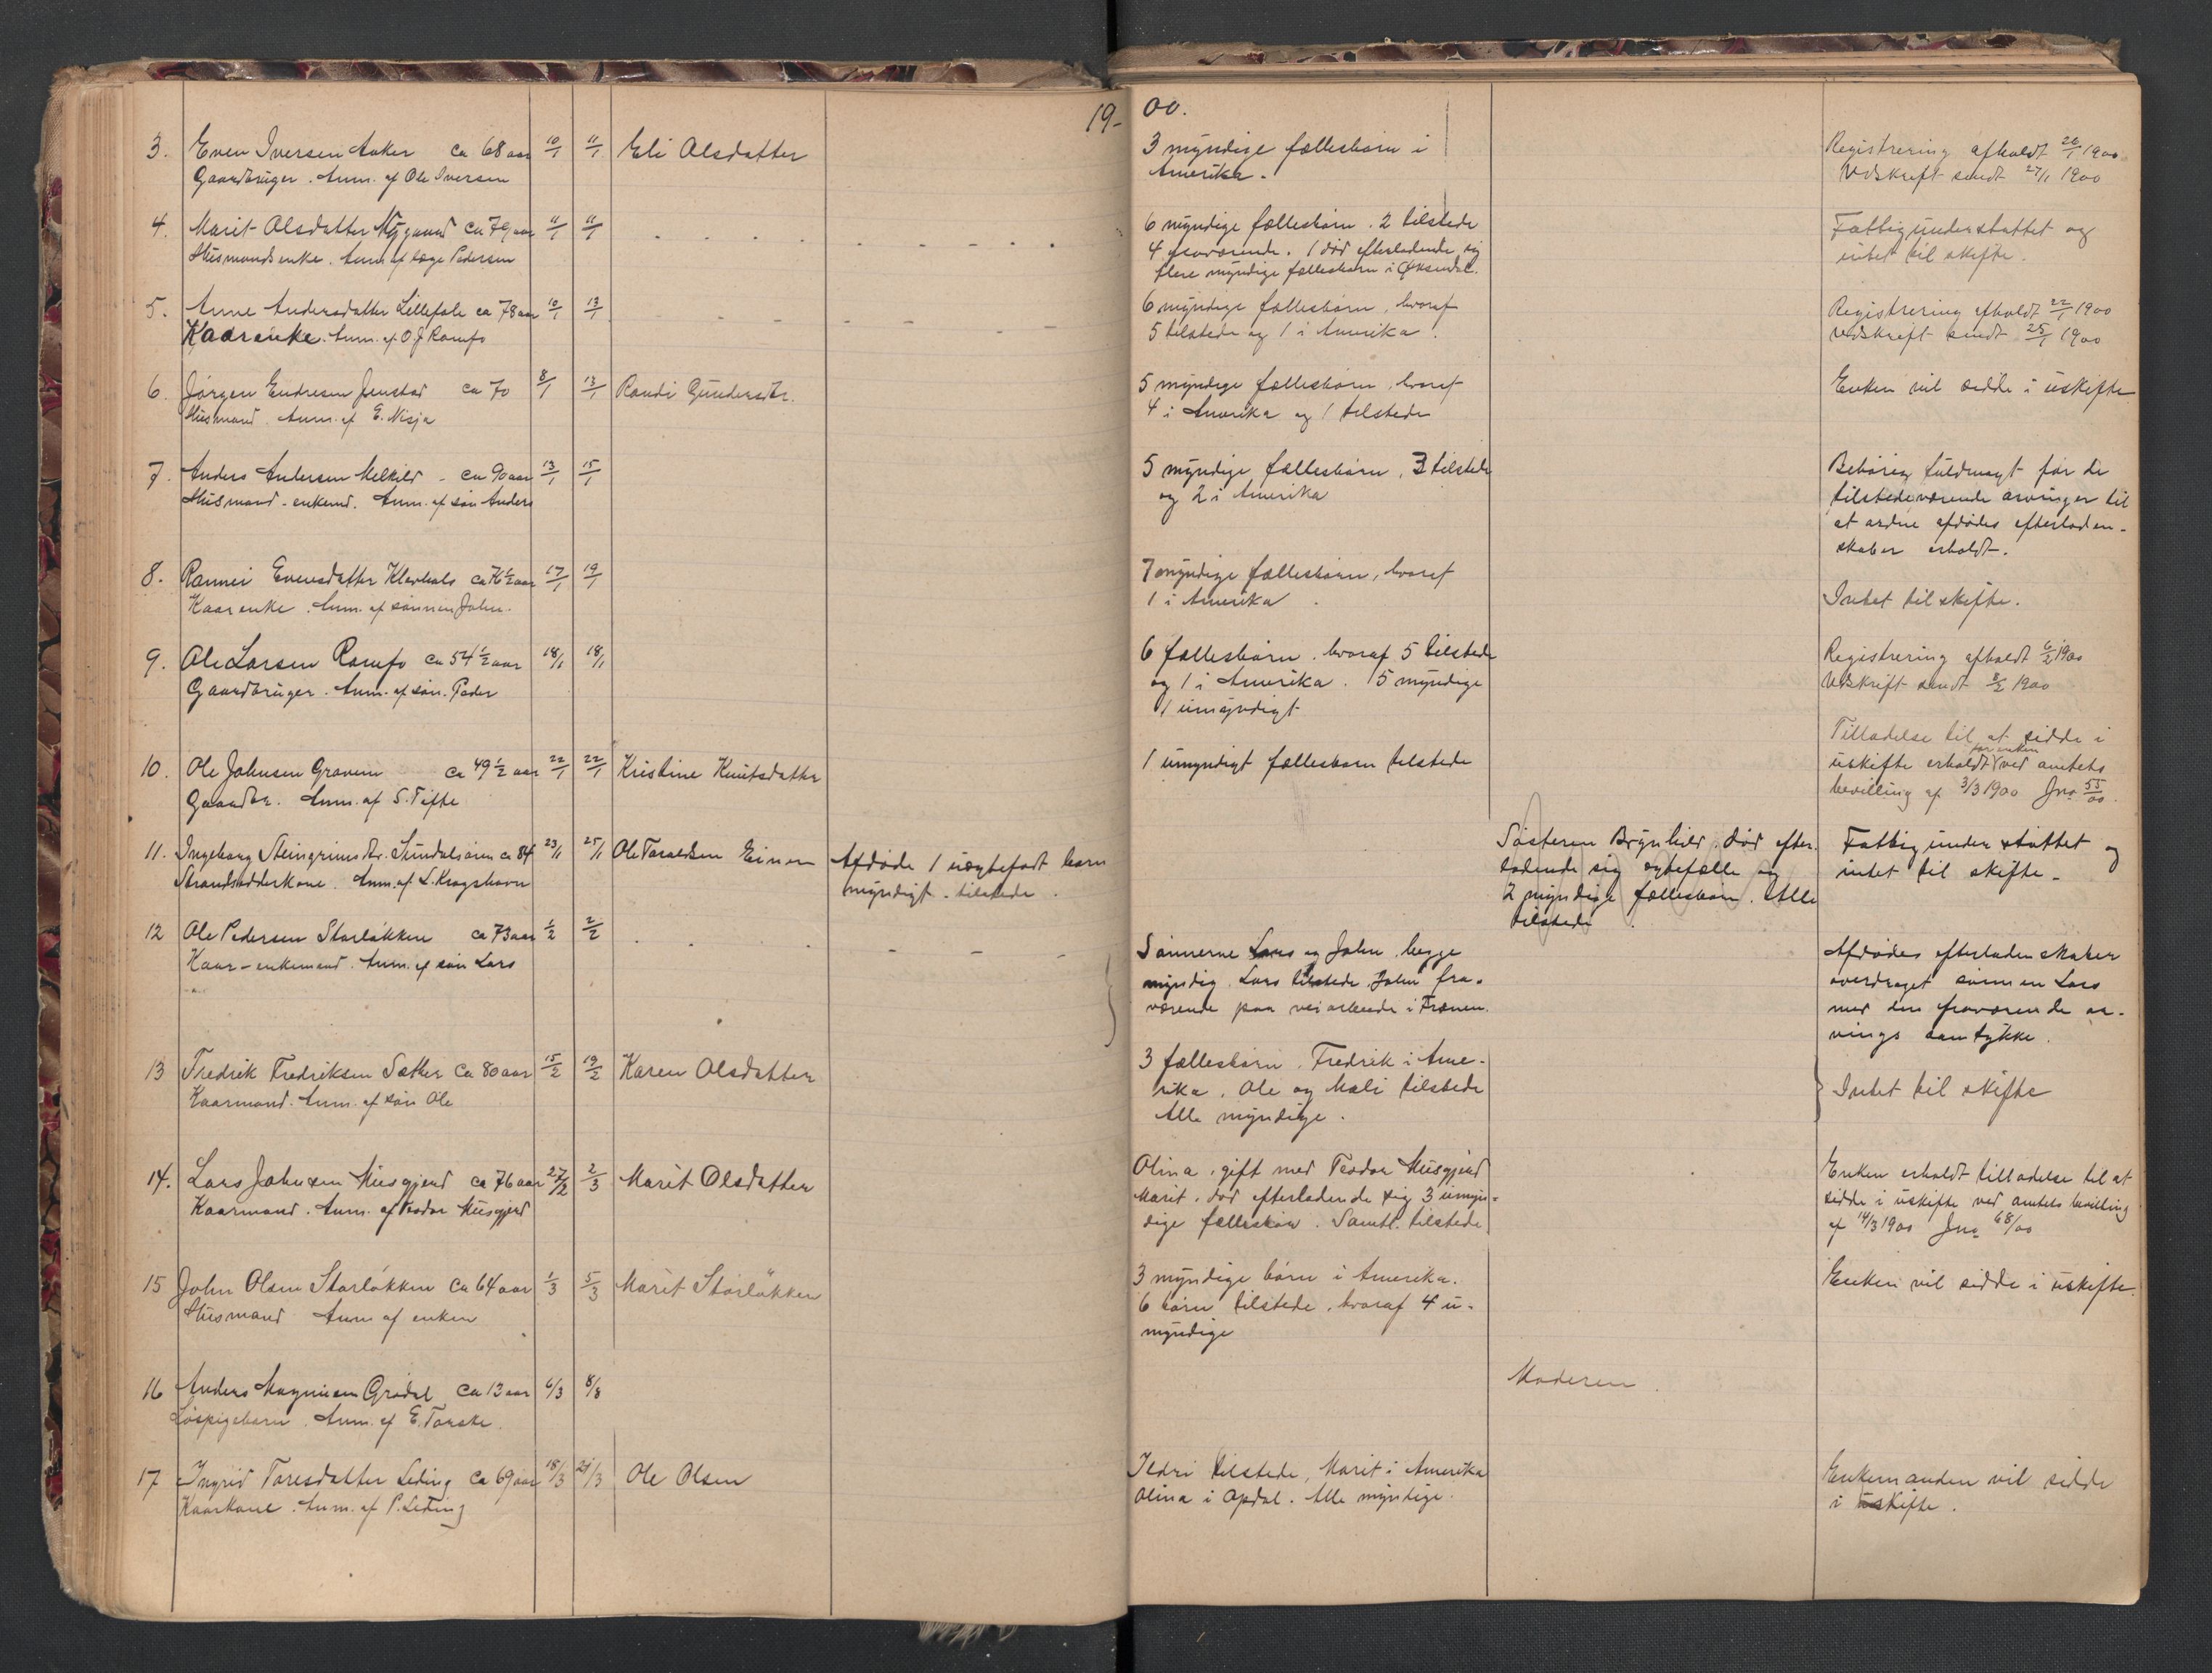 19-00.
3. Even Iversen Aaker ca 68 aar 10/1 11/1 Eli Olsdatter 3 myndige fællesbørn i Registrering afholdt 26/1 1900
Gaardbruger. Anm. af Ole Iversen Amerika. Udskrift sendt 27/1 1900
4. Marit Olsdatter Nygaard ca 79 aar 11/1 11/1 6 myndige fællesbørn. 2 tilstede Fattigunderstøttet og
Husmandsenke. Anm. af læge Pedersen 4 fraværende. 1 død efterladende sig intet til skifte.
flere myndige fællesbørn i Øksendal.
5. Anne Andersdatter Lillefale ca 78 aar 10/1 13/1 6 myndige fællesbørn, hvoraf Registrering afholdt 22/1 1900
Kaarenke. Anm. af O J Romfo 5 tilstede og 1 i Amerika. Udskrift sendt 25/1 1900
6. Jørgen Endresen Jenstad ca 70 8/1 13/1 Randi Gundersdtr. 5 myndige fællesbørn, hvoraf Enken vil sidde i uskifte
Husmand. Anm. af E. Nisja 4 i Amerika og 1 tilstede
7. Anders Andersen Melkild - ca 90 aar 13/1 15/1 5 myndige fællesbørn, 3 tilstede Behørig fuldmagt for de
Husmand - enkemd. Anm. af søn Anders og 2 i Amerika tilstedeværende arvinger til
at ordne afdødes efterladen-
skaber erholdt.
8. Rannei Evensdatter Klevhals ca 76 1/2 aar 17/1 19/1 7 myndige fællesbørn, hvoraf
Kaarenke. Anm. af sønnen John. 1 i Amerika. Intet til skifte.
9. Ole Larsen Romfo ca 54 1/2 aar 18/1 18/1 6 fællesbørn. hvoraf 5 tilstede Registrering afholdt 6/2 1900
Gaardbruger. Anm. af søn. Peder og 1 i Amerika. 5 myndige Udskrift sendt 8/2 1900
1 umyndigt
Tilladelse til at sidde i
10. Ole Johnsen Gravem ca 49 1/2 aar 22/1 22/1 Kristine Knutsdatter 1 umyndigt fællesbarn tilstede uskifte erholdt for enken ved amtets
Gaardbr. Anm. af S. Tifte bevilling af 3/3 1900 Jno 55/00.
11. Ingeborg Steingrimsdtr. Sundalsøren ca 84 23/1 25/1 Ole Taraldsen Einem Afdøde 1 uægtefødt barn Søsteren Brynhild. død efter- Fattigunderstøttet og
Strandsidderkone. Anm. af L. Krogshavn myndigt - tilstede. ladende sig ægtefælle og intet til skifte -
2 myndige fællesbørn. Alle
tilstede.
12 Ole Pedersen Storløkken ca 73 aar 1/2 2/2 Sønnerne Lars og John, begge Afdødes efterladenskaber
Kaar-enkemand. Anm. af søn Lars myndig. Lars tilstede John fra- overdraget sønnen Lars
værende paa veiarbeide i Frænen. med den fraværende ar-
vings samtykke.
13 Fredrik Fredriksen Sæther ca 80 aar 15/2 19/2 Karen Olsdatter 3 fællesbørn. Fredrik i Ame-
Kaarmand. Anm. af søn Ole rika, Ole og Mali tilstede Intet til skifte
Alle myndige.
14. Lars Johnsen Musgjerd ca 76 aar 27/2 2/3 Marit Olsdatter Olina, gift med Teodor Musgjerd Enken erholdt tilladelse til at
Kaarmand. Anm. af Teodor Musgjerd Marit, død efterladende sig 3 umyn- sidde i uskifte ved amtets bevilling
dige fællesbørn. Samtl. tilstede af 14/3 1900 Jno 68/00
15 John Olsen Storløkken ca 64 aar 1/3 5/3 Marit Storløkken 3 myndige børn i Amerika. Enken vil sidde i uskifte.
Husmand Anm af enken 6 børn tilstede, hvoraf 4 u-
myndige
16 Anders Magnusen Grødal ca 13 aar 6/3 8/3 Moderen.
Løspigebarn. Anm. af E. Torske.
17 Ingrid Toresdatter Leding ca 69 aar 18/3 21/3 Ole Olsen Ildri tilstede, Marit i Amerika Enkemanden vil sidde
Kaarkone. Anm. af P. Leding Olina i Opdal. Alle myndige. i uskifte.